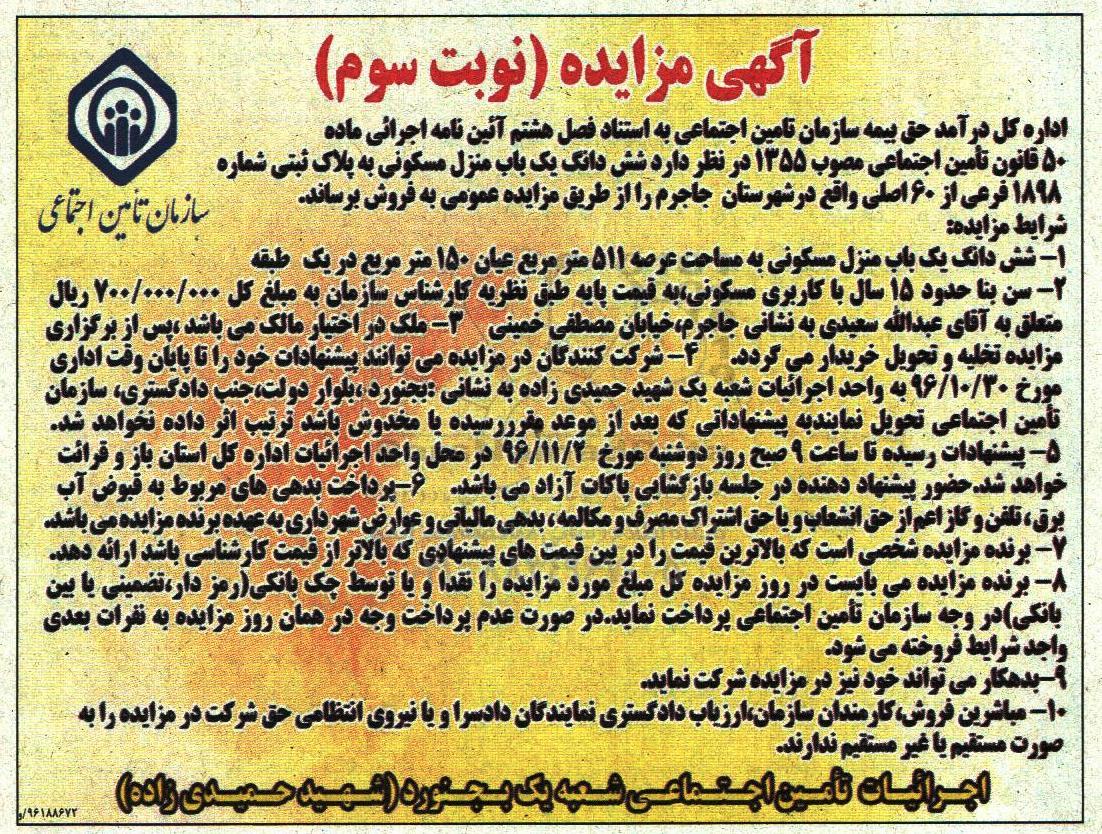 آگهی مزایده (نوبت سوم)
سازمان تأمین اجتماعی
اداره کل درآمد حق بیمه سازمان تامین اجتماعی به استناد فصل هشتم آئین نامه اجرائی ماده
۵۰ قانون تأمین اجتماعی مصوب ۱۳۵۵ در نظر دارد شش دانگ یک باب منزل مسکونی به پلاک ثبتی شماره
۱۸۹۸ فرعی از ۶۰ اصلی واقع در شهرستان جاجرم را از طریق مزایده عمومی به فروش برساند.
شرایط مزایده:
۱- شش دانگ یک باب منزل مسکونی به مساحت عرصه ۵۱۱ متر مربع عیان ۱۵۰ متر مربع در یک طبقه
۲- سن بنا حدود ۱۵ سال با کاربری مسکونی،به قیمت پایه طبق نظریه کارشناس سازمان به مبلغ کل ۷۰۰/۰۰۰/۰۰۰ ریال
متعلق به آقای عبدالله سعیدی به نشانی جاجرم،خیابان مصطفی خمینی ۳- ملک در اختیار مالک می باشد ،پس از برگزاری
مزایده تخلیه و تحویل خریدار می گردد. ۴- شرکت کنندگان در مزایده می توانند پیشنهادات خود را تا پایان وقت اداری
مورخ ۹۶/۱۰/۳۰ به واحد اجرائیات شعبه یک شهید حمیدی زاده به نشانی :بجنورد ،بلوار دولت،جنب دادگستری، سازمان
تأمین اجتماعی تحویل نمایندبه پیشنهاداتی که بعد از موعد مقرررسیده یا مخدوش باشد ترتیب اثر داده نخواهد شد.
۵- پیشنهادات رسیده تا ساعت ۹ صبح روز دوشنبه مورخ ۹۶/۱۱/۲ در محل واحد اجرائیات اداره کل استان باز و قرائت
خواهد شد.حضور پیشنهاد دهنده در جلسه بازگشایی پاکات آزاد می باشد. ۶-پرداخت بدهی های مربوط به قبوض آب
برق ، تلفن و گاز اعم از حق انشعاب و یا حق اشتراک مصرف و مکالمه ، بدهی مالیاتی و عوارض شهرداری به عهده برنده مزایده می باشد.
۷- برنده مزایده شخصی است که بالاترین قیمت را در بین قیمت های پیشنهادی که بالاتر از قیمت کارشناسی باشد ارائه دهد.
۸- برنده مزایده می بایست در روز مزایده کل مبلغ مورد مزایده را نقدا و یا توسط چک بانکی(رمز دار،تضمینی یا بین
بانکی)در وجه سازمان تأمین اجتماعی پرداخت نماید.در صورت عدم پرداخت وجه در همان روز مزایده به نفرات بعدی
واجد شرایط فروخته می شود.
۹-بدهکار می تواند خود نیز در مزایده شرکت نماید.
۱۰- مباشرین فروش،کارمندان سازمان،ارزیاب دادگستری نمایندگان دادسرا و یا نیروی انتظامی حق شرکت در مزایده را به
صورت مستقیم یا غیر مستقیم ندارند.
اجرائیات تأمین اجتماعی شعبه یک بجنورد (شهید حمیدی زاده)
۹۶۱۸۸۶۷۲/و